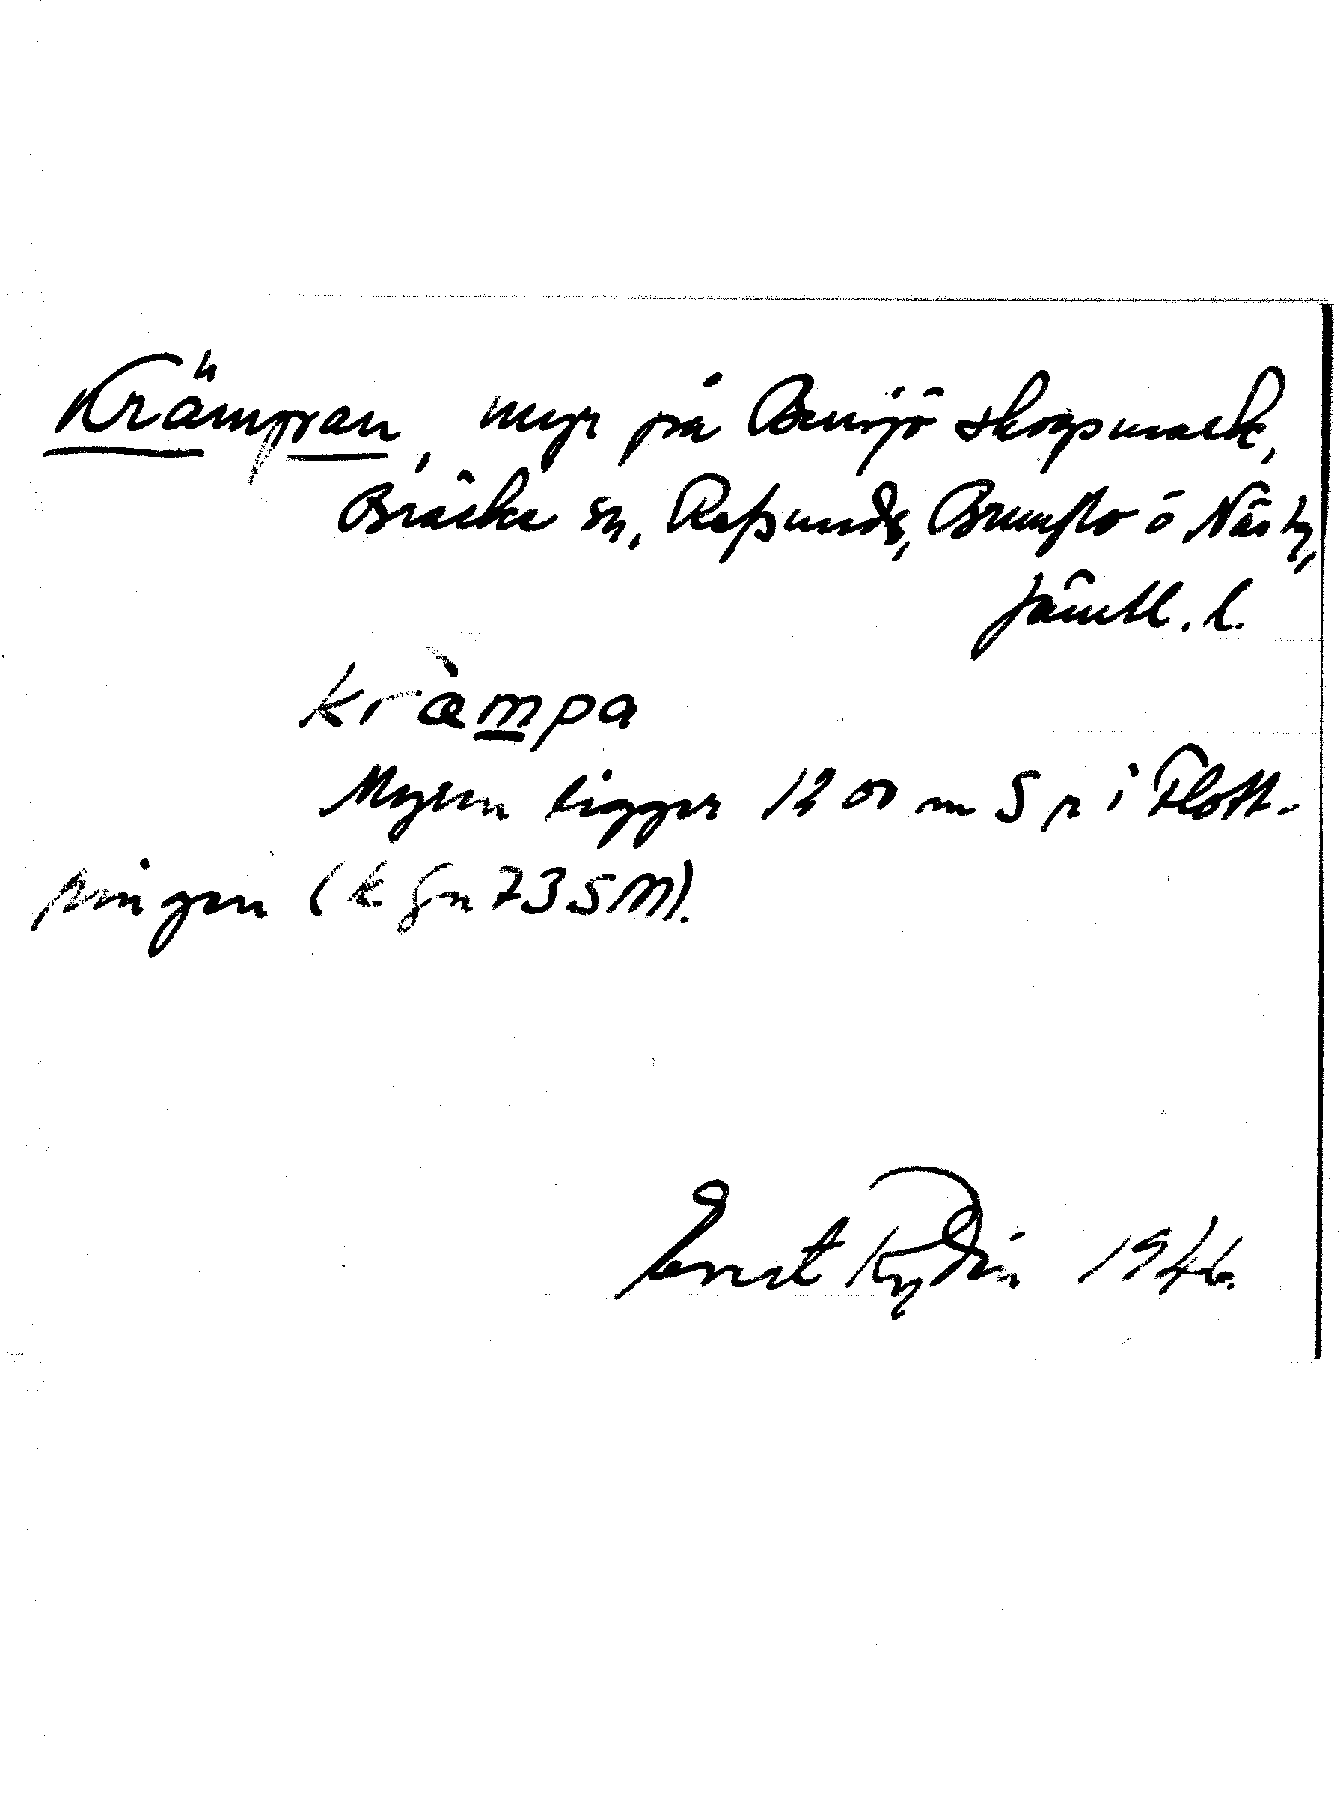 Krämpan, myr på Bensjö skogsmark,
Bräcke sn, Refsunds, Brunflo o Näs tg,
Jämtl. l.
kràmpa
Myren ligger 1200 m S p i Flott-
ningen (k gn 73 S M).
Ernst Rydin 1946.